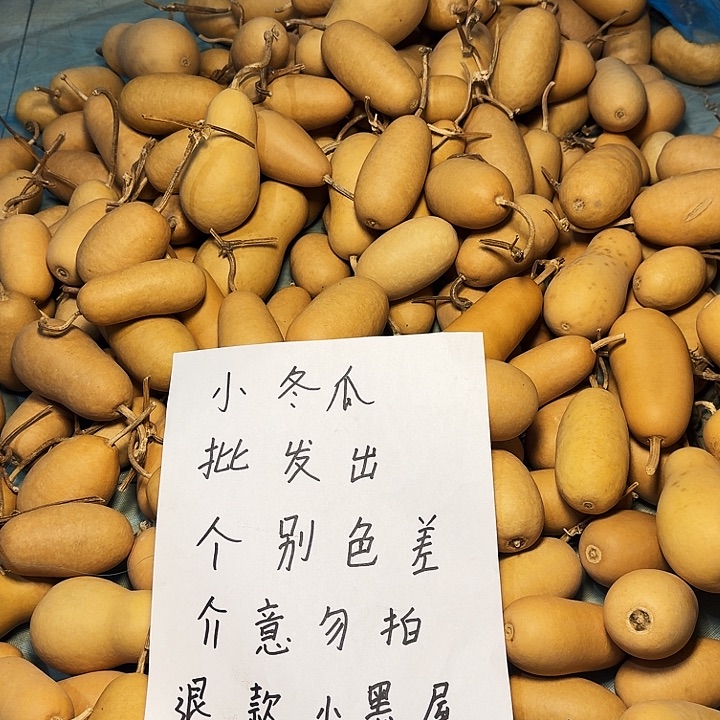 小冬瓜
批发出
个别色差
介意勿拍
退款小黑屋